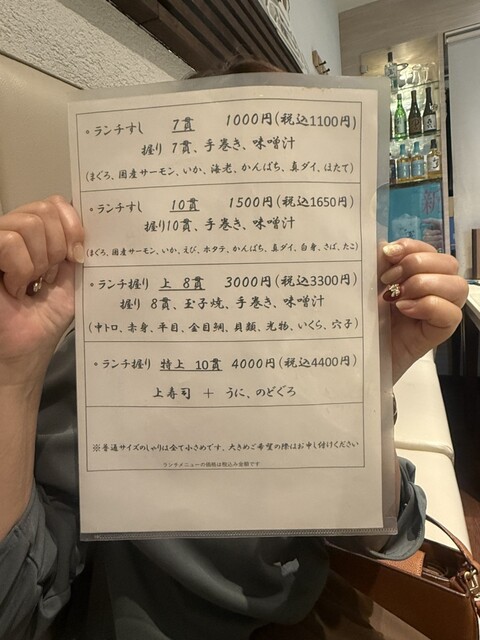 • ランチすし 7貫 1000円(税込1100円)
握り 7貫、手巻き、味噌汁
(まぐろ、国産サーモン、いか、海老、かんぱち、真ダイ、ほたて)
• ランチすし 10貫 1500円(税込1650円)
握り10貫、手巻き、味噌汁
(まぐろ、国産サーモン、いか、えび、ホタテ、かんぱち、真ダイ、白身、さば、たこ)
• ランチ握り 上 8貫 3000円(税込3300円)
握り 8貫、玉子焼、手巻き、味噌汁
(中トロ、赤身、平目、金目鯛、貝類、光物、いくら、穴子)
• ランチ握り 特上 10貫 4000円(税込4400円)
上寿司 + うに、のどぐろ
※普通サイズのしゃりは全て小さめです、大きめご希望の際はお申し付けください
ランチメニューの価格は税込み金額です